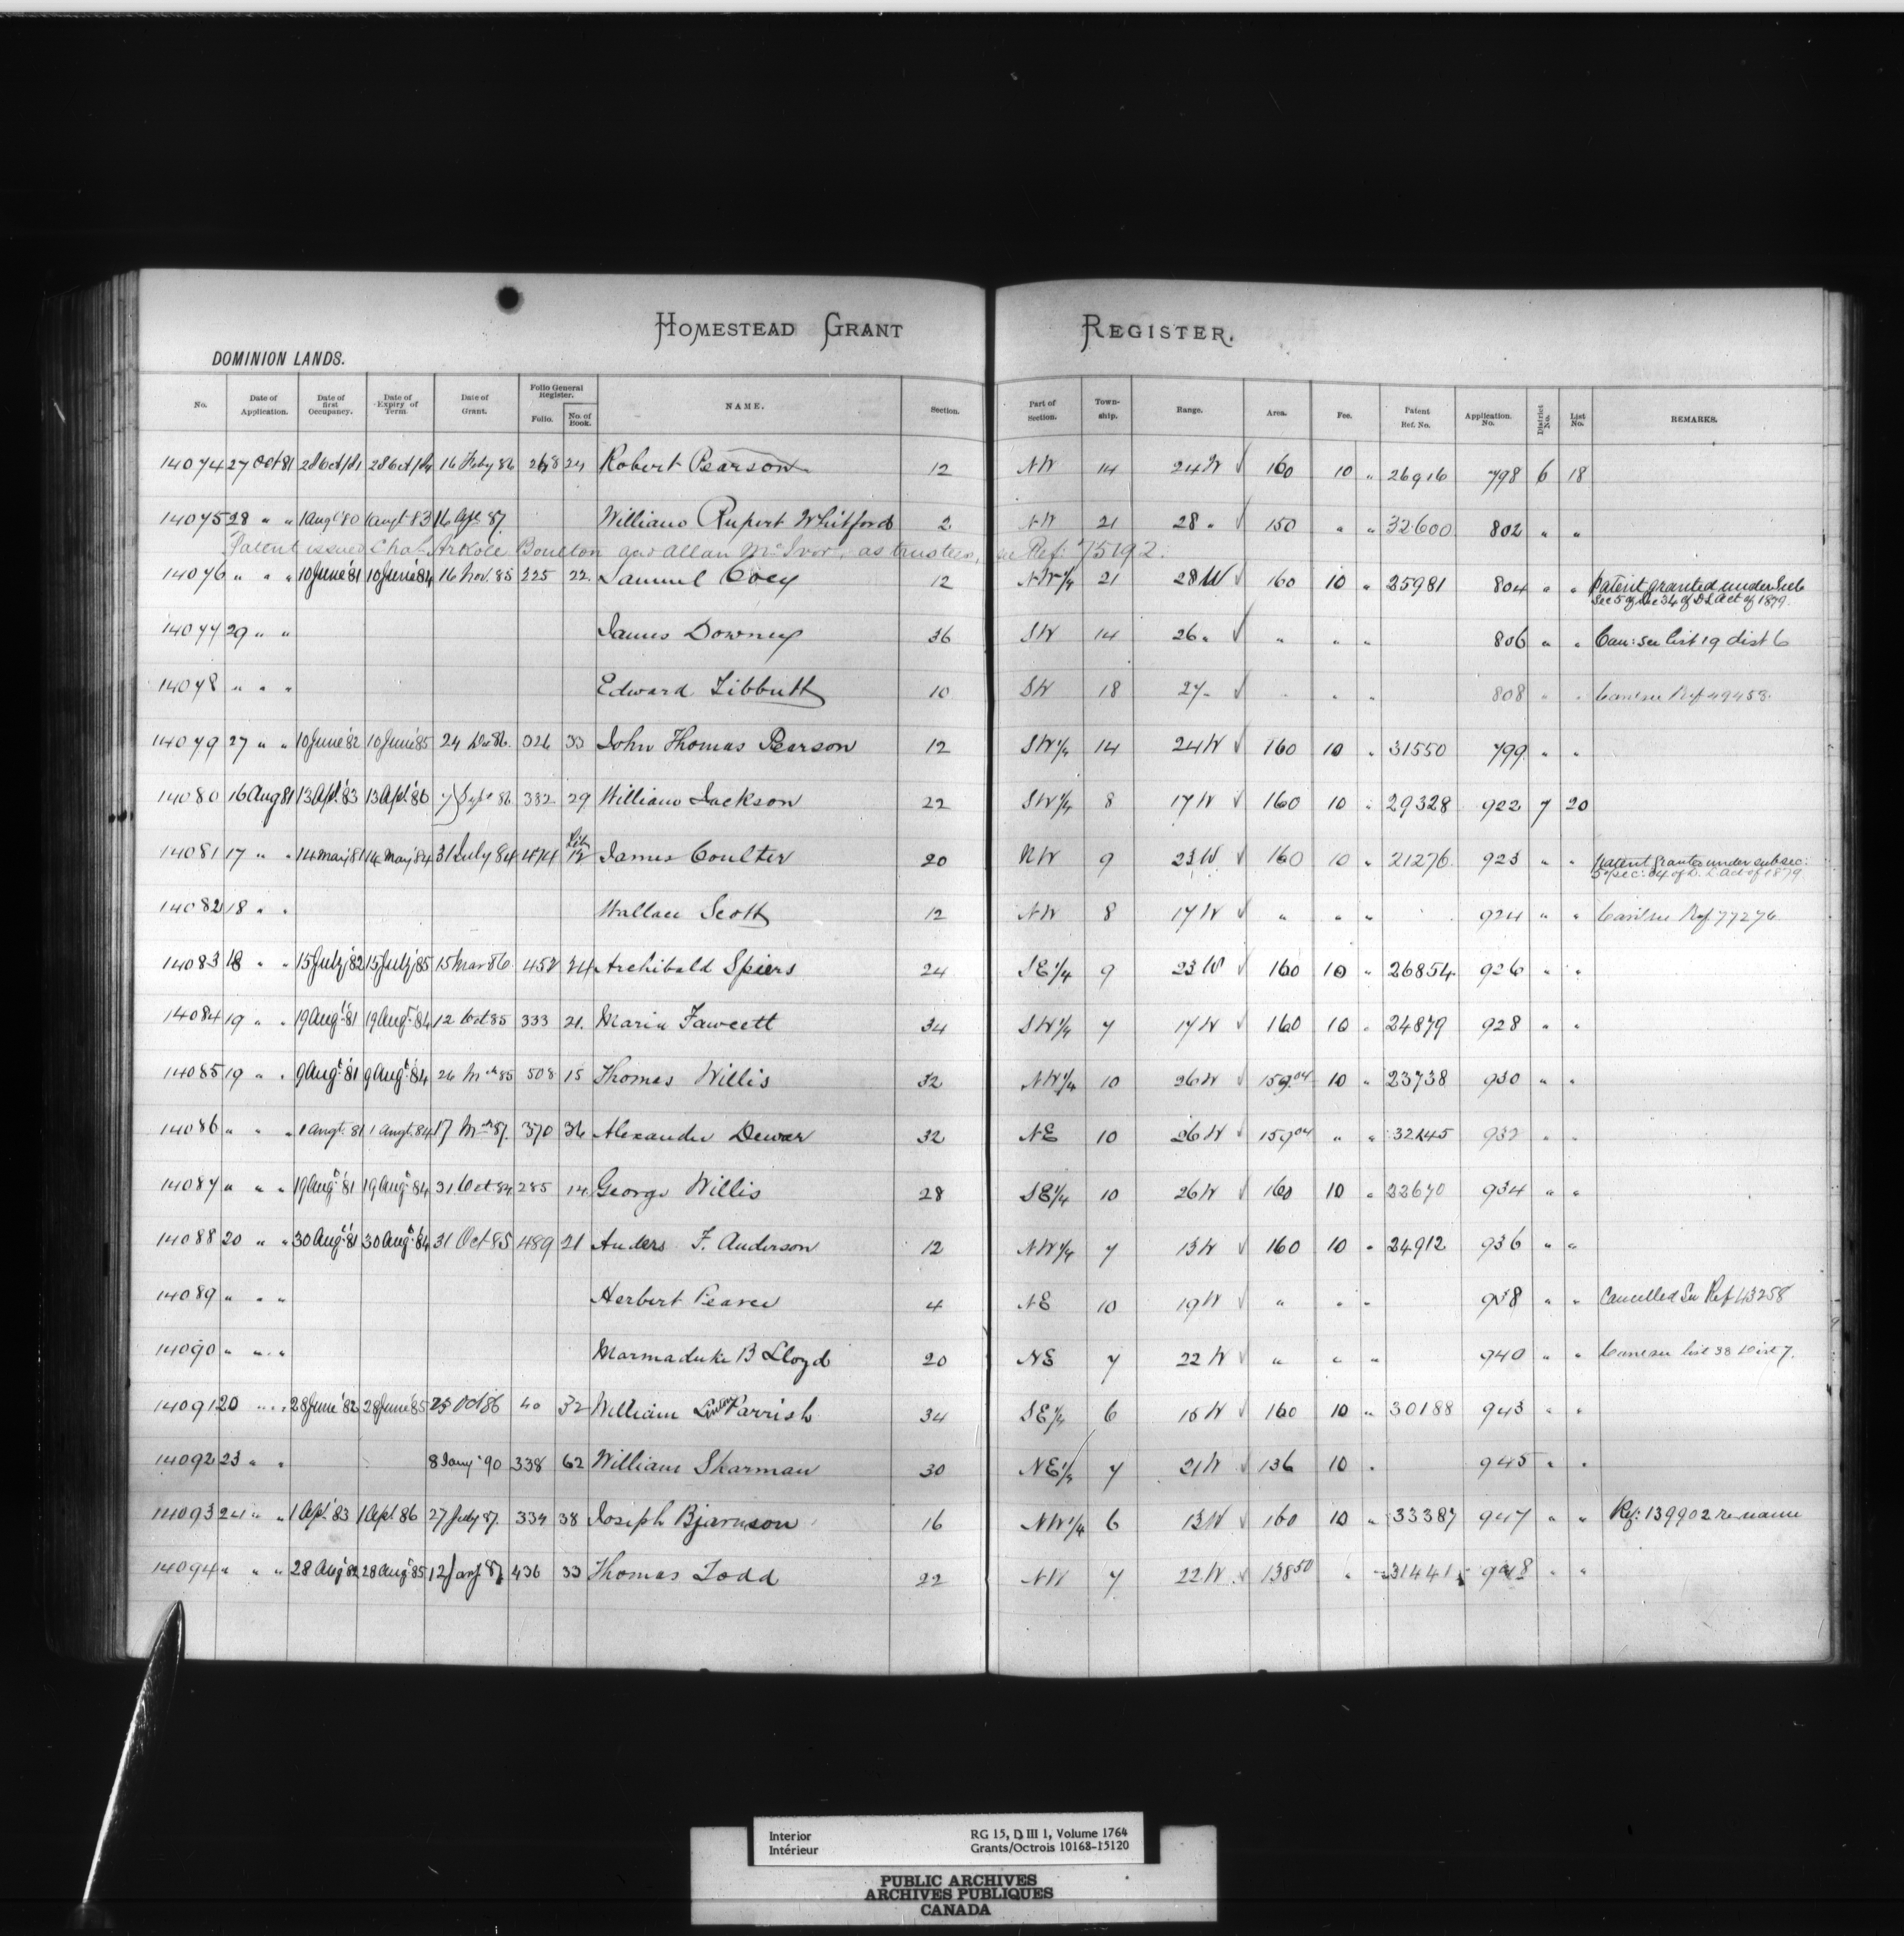 HOMESTEAD GRANT REGISTER.
DOMINION LANDS.
No. Date of Application. Date of first Occupancy. Date of Expiry of Term. Date of Grant. Folio General Register. Folio. No. of Book. NAME. Section. Part of Section. Town-ship. Range. Area. Fee. Patent Ref. No. Application No. District No. List No. REMARKS.
14074 27 Oct 81 28 Oct/81 28 Oct/84 16 Feby 86 268 24 Robert Pearson 12 NW 14 24 W √ 160 10 " 26916 798 6 18
14075 28 " " 1 Augt '80 1 augt 83 16 Apl 87 William Rupert Whitford 2 NW 21 28 " √ 150 " " 32600 802 " "
Patent issued Chas Arkoll Boulton and Allan McIvor, as trustees, see Ref: 75192.
14076 " " " 10 June '81 10 June '84 16 Nov. 85 225 22. Samuel Coey 12 NW 1/4 21 28 W √ 160 10 " 25981 804 " " Patent granted under Sub
Sec 5 of Sec 34 of D L Act of 1879.
14077 29 " " James Downey 36 SW 14 26 " √ " " " 806 " " Can: see List 19 dist 6
14078 " " " Edward Tibbutt 10 SW 18 27 " √ " " " 808 " " Can see Ref 49458.
14079 27 " " 10 June '82 10 June '85 24 Dec 86. 326 33 John Thomas Pearson 12 SW 1/4 14 24 W √ 160 10 " 31550 799 " "
14080 16 Aug 81 13 Apl. '83 13 Apl. '86 7 Sept 86 332 29 William Jackson 22 SW 1/4 8 17 W √ 160 10 " 29328 922 7 20
14081 17 " " 14 May '81 14 May '84 31 July 84 474 12 James Coulter 20 NW 9 23 W √ 160 10 " 21276 923 " " Patent Granted under subsec:
5 of sec: 34 of D. L. Act of 1879
14082 18 " " Wallace Scott 12 NW 8 17 W √ " " " 924 " " Can see Ref 77276
14083 18 " " 15 July '82 15 July '85 15 Mar 86 452 24 Archibald Spiers 24 SE 1/4 9 23 W √ 160 10 " 26854 926 " "
14084 19 " " 19 Augt '81 19 Augt '84 12 Oct 85 333 21. Maria Fawcett 34 SW 1/4 7 17 W √ 160 10 " 24879 928 " "
14085 19 " " 9 Augt '81 9 Augt '84 26 Mch 85 508 15 Thomas Willis 32 NW 1/4 10 26 W √ 159.04 10 " 23738 930 " "
14086 " " " 1 Augt. 81 1 Augt. 84 17 Mch 87. 370 36 Alexander Dewar 32 NE 10 26 W √ 159 04 " " 32145 932 " "
14087 " " " 19 Augt '81 19 Augt 84 31 Oct 84 285 14. George Willis 28 SE 1/4 10 26 W √ 160 10 " 22670 934 " "
14088 20 " " 30 Augt '81 30 Augt 84 31 Oct 85 489 21 Anders F. Anderson 12 NW 1/4 7 13 W √ 160 10 " 24912 936 " "
14089 " " " Herbert Pearce 4 NE 10 19 W √ " " " 938 " " Cancelled See Ref 43258
14090 " " " Marmaduke B Lloyd 20 NE 7 22 W √ " " " 940 " " Can see list 38 Dist 7.
14091 20 " " 28 June '82 28 June '85 25 Oct 86 40 32 William Parrish 34 SE 1/4 6 15 W √ 160 10 " 30188 943 " "
14092 23 " " 8 Jany '90 338 62 William Sharman 30 NE 1/4 7 21 W √ 136 10 " 945 " "
14093 24 " " 1 Apl. '83 1 Apl 86 27 July 87. 334 38 Joseph Bjarnson 16 NW 1/4 6 13 W √ 160 10 " 33387 947 " " Ref: 139902 re name
14094 " " " 28 Aug '82 28 Aug '85 12 Jany 87 436 33 Thomas Todd 22 NW 7 22 W √ 138 50 " " 31441 948 " "
Interior
Intérieur
RG 15, D III 1, Volume 1764
Grants/Octrois 10168-15120
PUBLIC ARCHIVES
ARCHIVES PUBLIQUES
CANADA